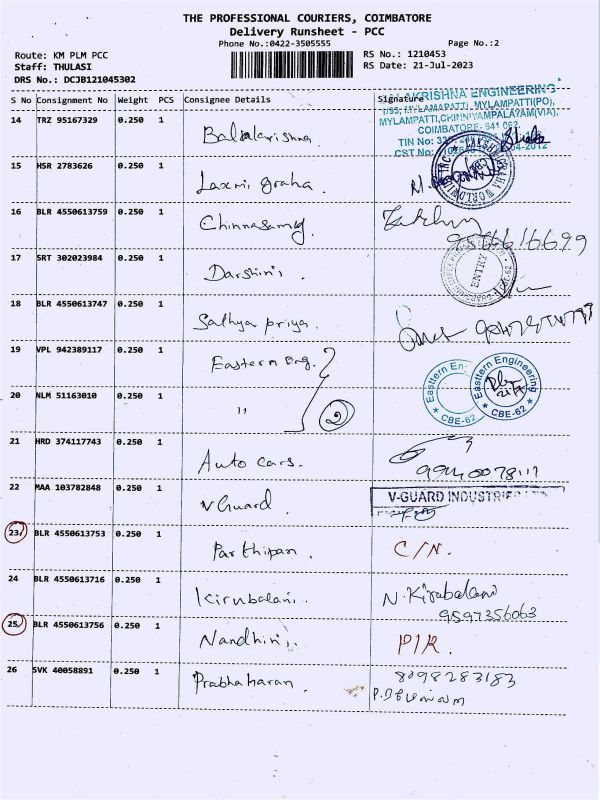 THE PROFESSIONAL COURIERS, COIMBATORE
Delivery Runsheet - PCC
Phone No.:0422-3505555
Page No.:2
Route: KM PLM PCC
Staff: THULASI
DRS No.: DCJB121045302
RS No.: 1210453
RS Date: 21-Jul-2023
S No Consignment No Weight PCS Consignee Details Signature
14 TRZ 95167329 0.250 1 Balakrishna
KRISHNA ENGINEERING
MYLAMPATTI, MYLAMPATTI(PO),
MYLAMPATTI,CHINNIYAMPALAYAM(VIA),
COIMBATORE- 641 062.
TIN No:
CST No:
15 HSR 2783626 0.250 1 Laxmi graha.
16 BLR 4550613759 0.250 1 Chinnasamy.
17 SRT 302023984 0.250 1 Darshini.
ENTRY
18 BLR 4550613747 0.250 1 Sathya priya.
19 VPL 942389117 0.250 1 Eastern Eng.
Eastern Engineering
CBE-62
Eastern Engineering
CBE-62
20 NLM 51163010 0.250 1 " 2
21 HRD 374117743 0.250 1 Auto cars.
22 MAA 103782848 0.250 1 V Guard.
V-GUARD INDUSTRIES
23 BLR 4550613753 0.250 1 Parthipan. C/N.
24 BLR 4550613716 0.250 1 Kirubalani. N. Kirubalani
9597356063
25 BLR 4550613756 0.250 1 Nandhini. P/R.
26 SVK 40058891 0.250 1 Prabhaharan. 8098283183